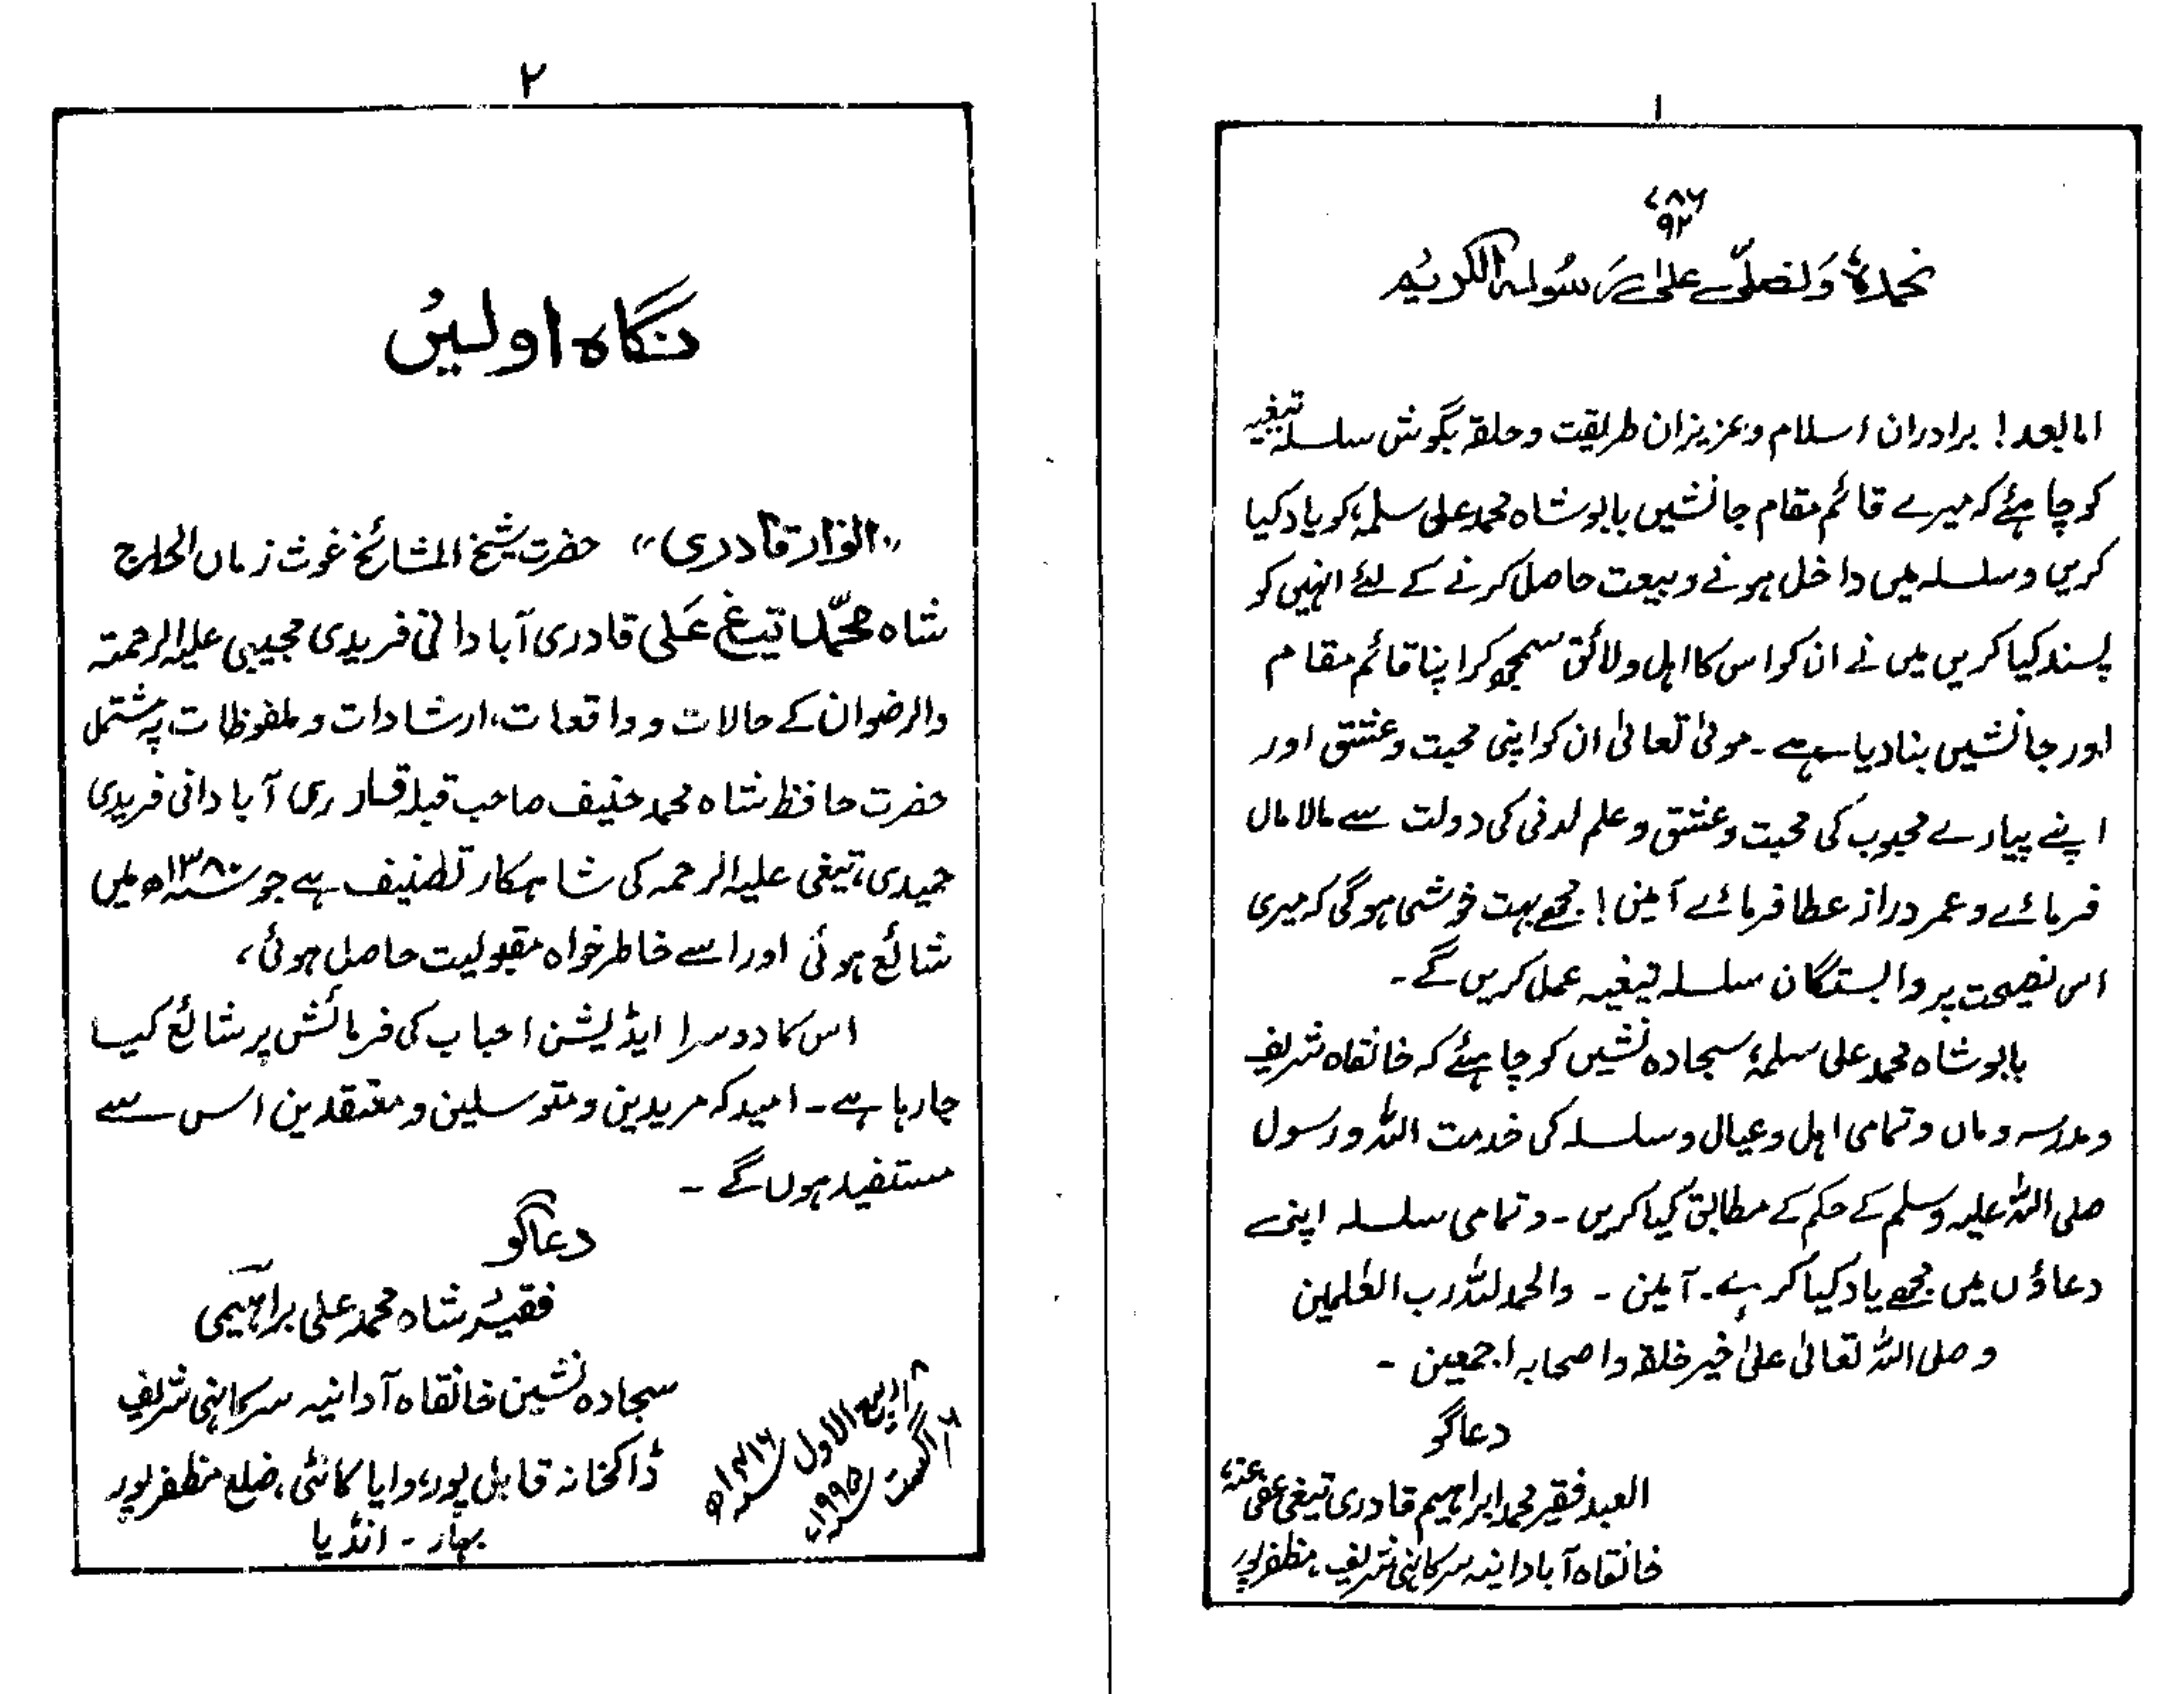 ۱
۷۸۶
۹۲
نحمدہٗ وَنصلّی علیٰ رَسُولہ الکریم
امابعد! برادران اسلام وعزیزان طریقت وحلقہ بگوش سلسلہ تیغیہ
کو چاہئے کہ میرے قائم مقام جانشیں بابو شاہ محمد علی سلمہٗ کو یاد کیا
کریں وسلسلہ میں داخل ہونے وبیعت حاصل کرنے کے لئے انہیں کو
پسند کیا کریں میں نے ان کو اس کا اہل ولائق سمجھ کر اپنا قائم مقام
اور جانشیں بنادیا ہے۔ مولیٰ تعالیٰ ان کو اپنی محبت وعشق اور
اپنے پیارے محبوب کی محبت وعشق وعلم لدنی کی دولت سے مالا مال
فرمائے وعمر دراز عطا فرمائے آمین! مجھے بہت خوشی ہوگی کہ میری
اس نصیحت پر وابستگان سلسلہ تیغیہ عمل کریں گے۔
بابو شاہ محمد علی سلمہٗ سجادہ نشیں کو چاہئے کہ خانقاہ شریف
ومدرسہ وماں وتمامی اہل وعیال وسلسلہ کی خدمت اللہ ورسول
صلی اللہ علیہ وسلم کے حکم کے مطابق کیا کریں۔ وتمامی سلسلہ اپنے
دعاؤں میں مجھے یاد کیا کرے۔ آمین۔ والحمد للہ رب العٰلمین
وصلی اللہ تعالیٰ علیٰ خیر خلقہ واصحابہ اجمعین۔
دعاگو
العبد فقیر محمد ابراہیم قادری تیغی عفی عنہٗ
خانقاہ آبادانیہ سرکانہی شریف، مظفرپور
۲
نگاہ اولیں
"انوار قادری" حضرت شیخ المشائخ غوث زماں الحاج
شاہ محمّد تیغ عَلی قادری آبادانی فریدی مجیبی علیہ الرحمتہ
والرضوان کے حالات وواقعات، ارشادات وملفوظات پر مشتمل
حضرت حافظ شاہ محمد حنیف صاحب قبلہ قادری آبادانی فریدی
حمیدی، تیغی علیہ الرحمہ کی شاہکار تصنیف ہے جو سنہ ۱۳۸۰ھ میں
شائع ہوئی اور اسے خاطر خواہ مقبولیت حاصل ہوئی،
اس کا دوسرا ایڈیشن احباب کی فرمائش پر شائع کیا
جارہا ہے۔ امید کہ مریدین ومتوسلین ومعتقدین اس سے
مستفید ہوں گے۔
دعاگو
فقیر شاہ محمد علی براہیمی
سجادہ نشین خانقاہ آدانیہ سرکانہی شریف
ڈاکخانہ قابل پور، وایا کانٹی، ضلع مظفرپور
بہار۔ انڈیا
ربیع الاول ۱۴۱۶ھ
اگست ۱۹۹۵ء